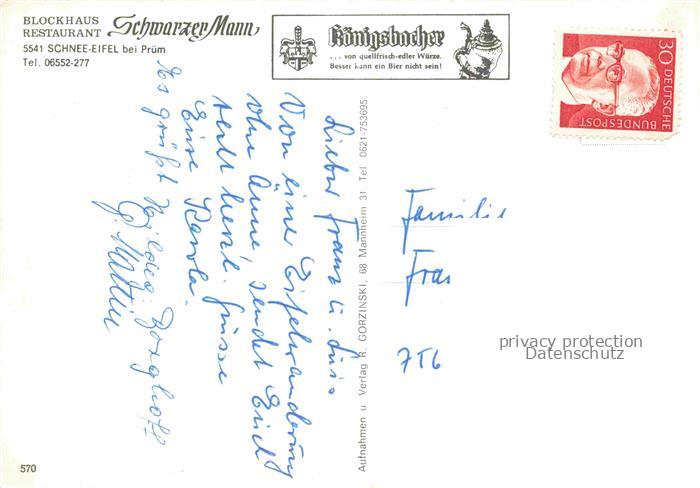 BLOCKHAUS
RESTAURANT Schwarzer Mann
5541 SCHNEE-EIFEL bei Prüm
Tel. 06552-277
Königsbacher
... von quellfrisch-edler Würze.
Besser kann ein Bier nicht sein!
30 DEUTSCHE
BUNDESPOST
Lieber Franz u.
Von einer Eifelwanderung
ohne Änne sendet Euch
recht herzl. Grüsse
Eure
Es grüßt
Aufnahmen u Verlag R. GORZINSKI, 68 Mannheim 31 Tel. 0621-753695
Familie
Fra
756
privacy protection
Datenschutz
570